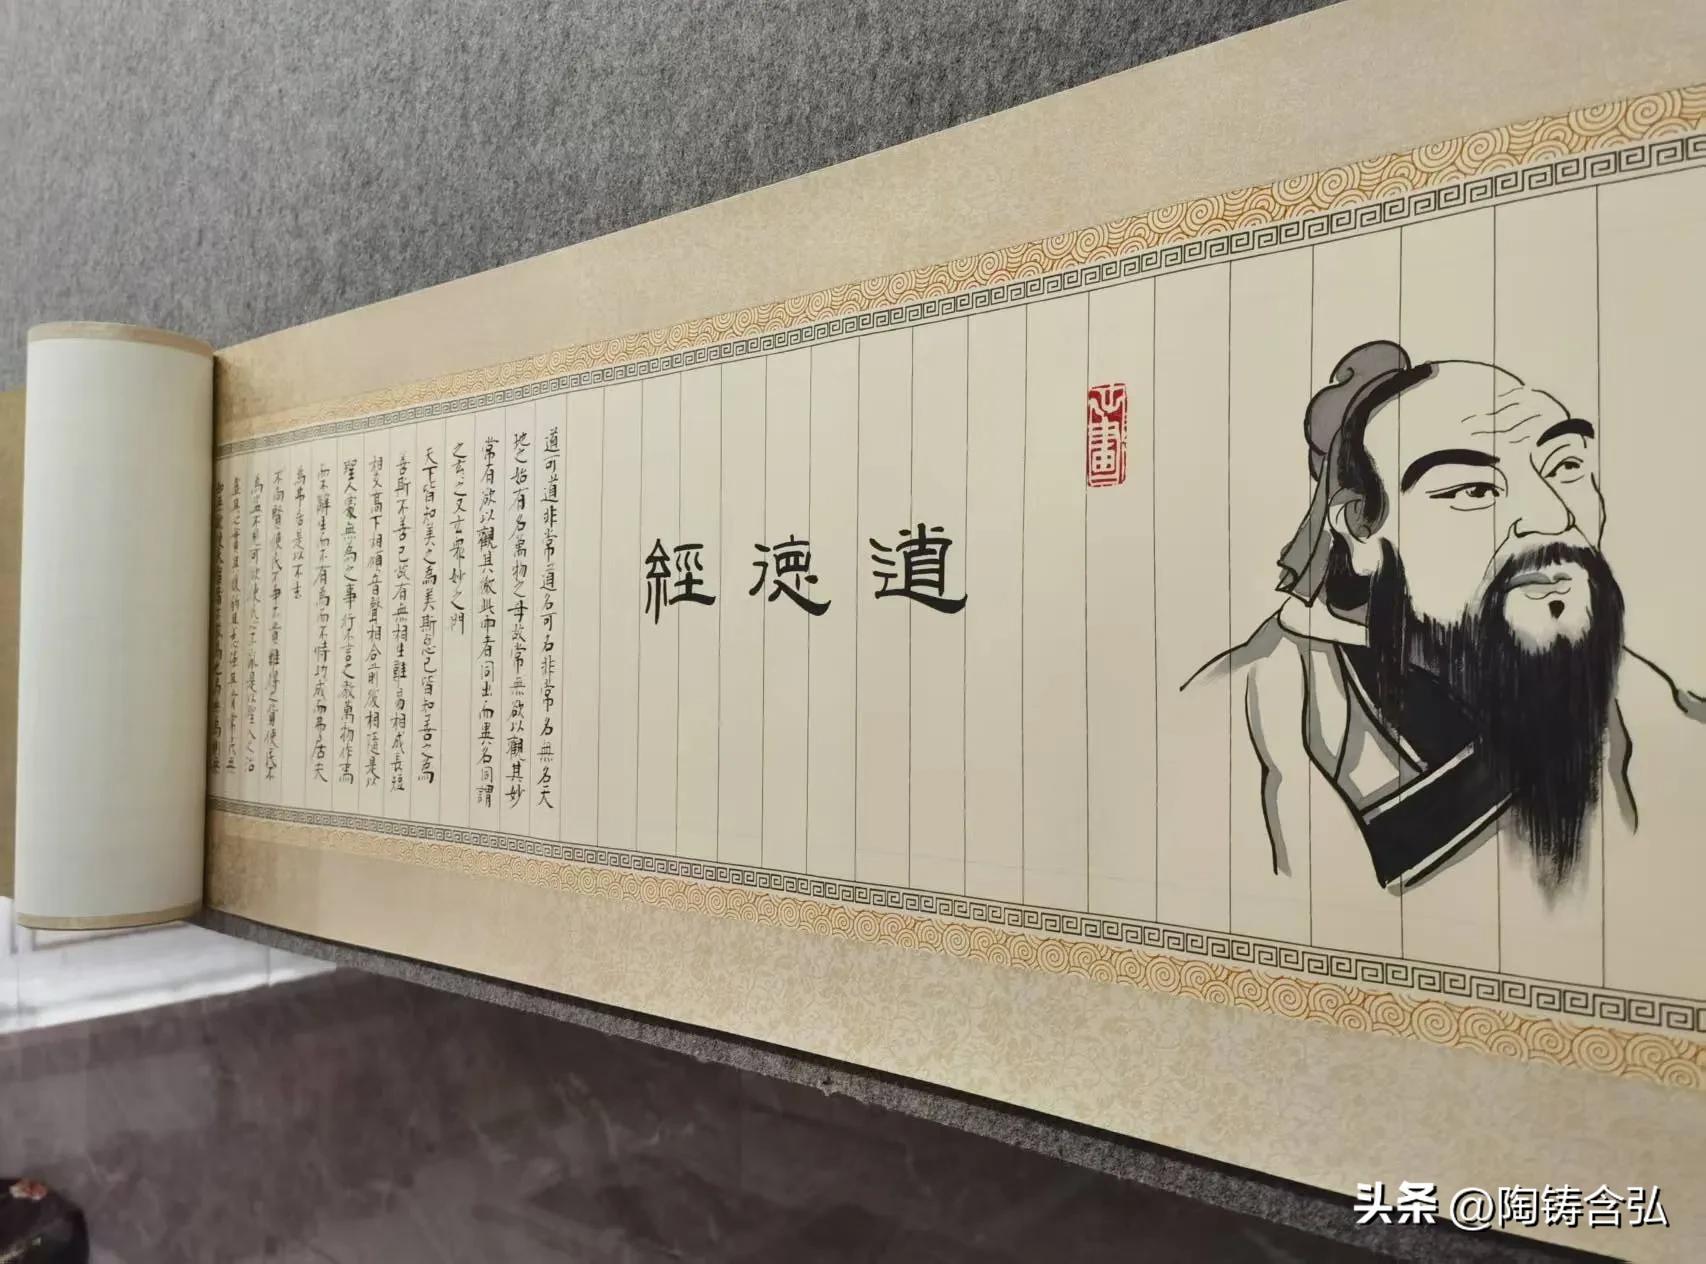 道德經
道可道非常道名可名非常名無名天
地之始有名萬物之母故常無欲以觀其妙
常有欲以觀其徼此兩者同出而異名同謂
之玄玄之又玄眾妙之門
天下皆知美之為美斯惡已皆知善之為
善斯不善已故有無相生難易相成長短
相交高下相傾音聲相合前後相隨是以
聖人處無為之事行不言之教萬物作焉
而不辭生而不有為而不恃功成而弗居夫
弗居是以不去
不尚賢使民不爭不貴難得之貨使民不
為盜不見可欲使民心不亂是以聖人之治
頭条 @陶铸含弘